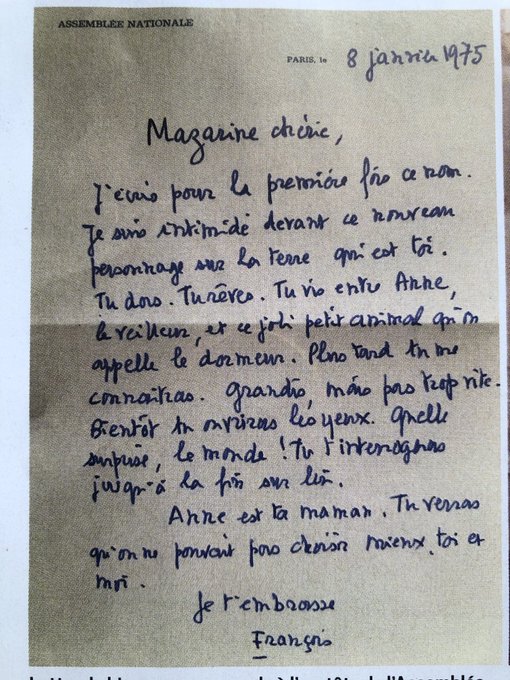 ASSEMBLÉE NATIONALE
PARIS, le 8 janvier 1975
Mazarine chérie,
J'écris pour la première fois ce nom.
Je suis intimidé devant ce nouveau
personnage sur la terre qui est toi.
Tu dors. Tu rêves. Tu vis entre Anne,
le veilleur, et ce joli petit animal qu'on
appelle le dormeur. Plus tard tu me
connaîtras. Grandis, mais pas trop vite.
Bientôt tu ouvriras les yeux. Quelle
surprise, le monde ! Tu t'interrogeras
jusqu'à la fin sur lui.
Anne est ta maman. Tu verras
qu'on ne pouvait pas choisir mieux, toi et
moi.
Je t'embrasse
François